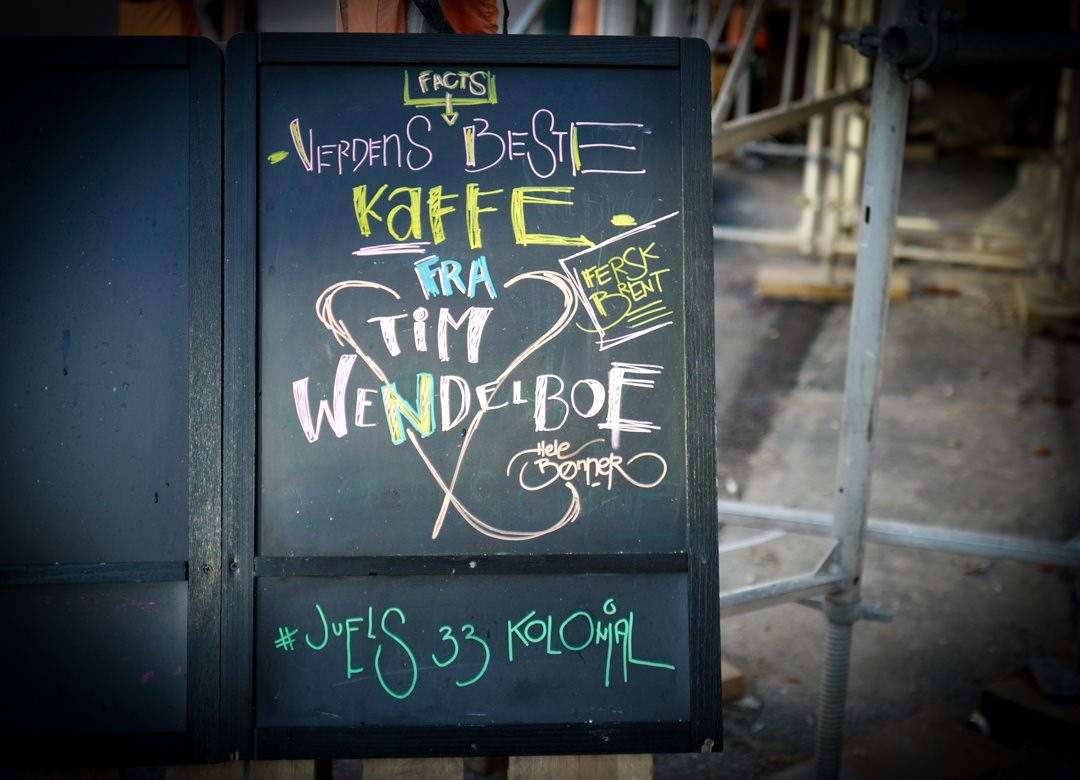 FACTS
VERDENS BESTE
KAFFE
FRA
TIM
WENDELBOE
FERSK
BRENT
Hele
BØNNER
#JUELS 33 KOLONIAL